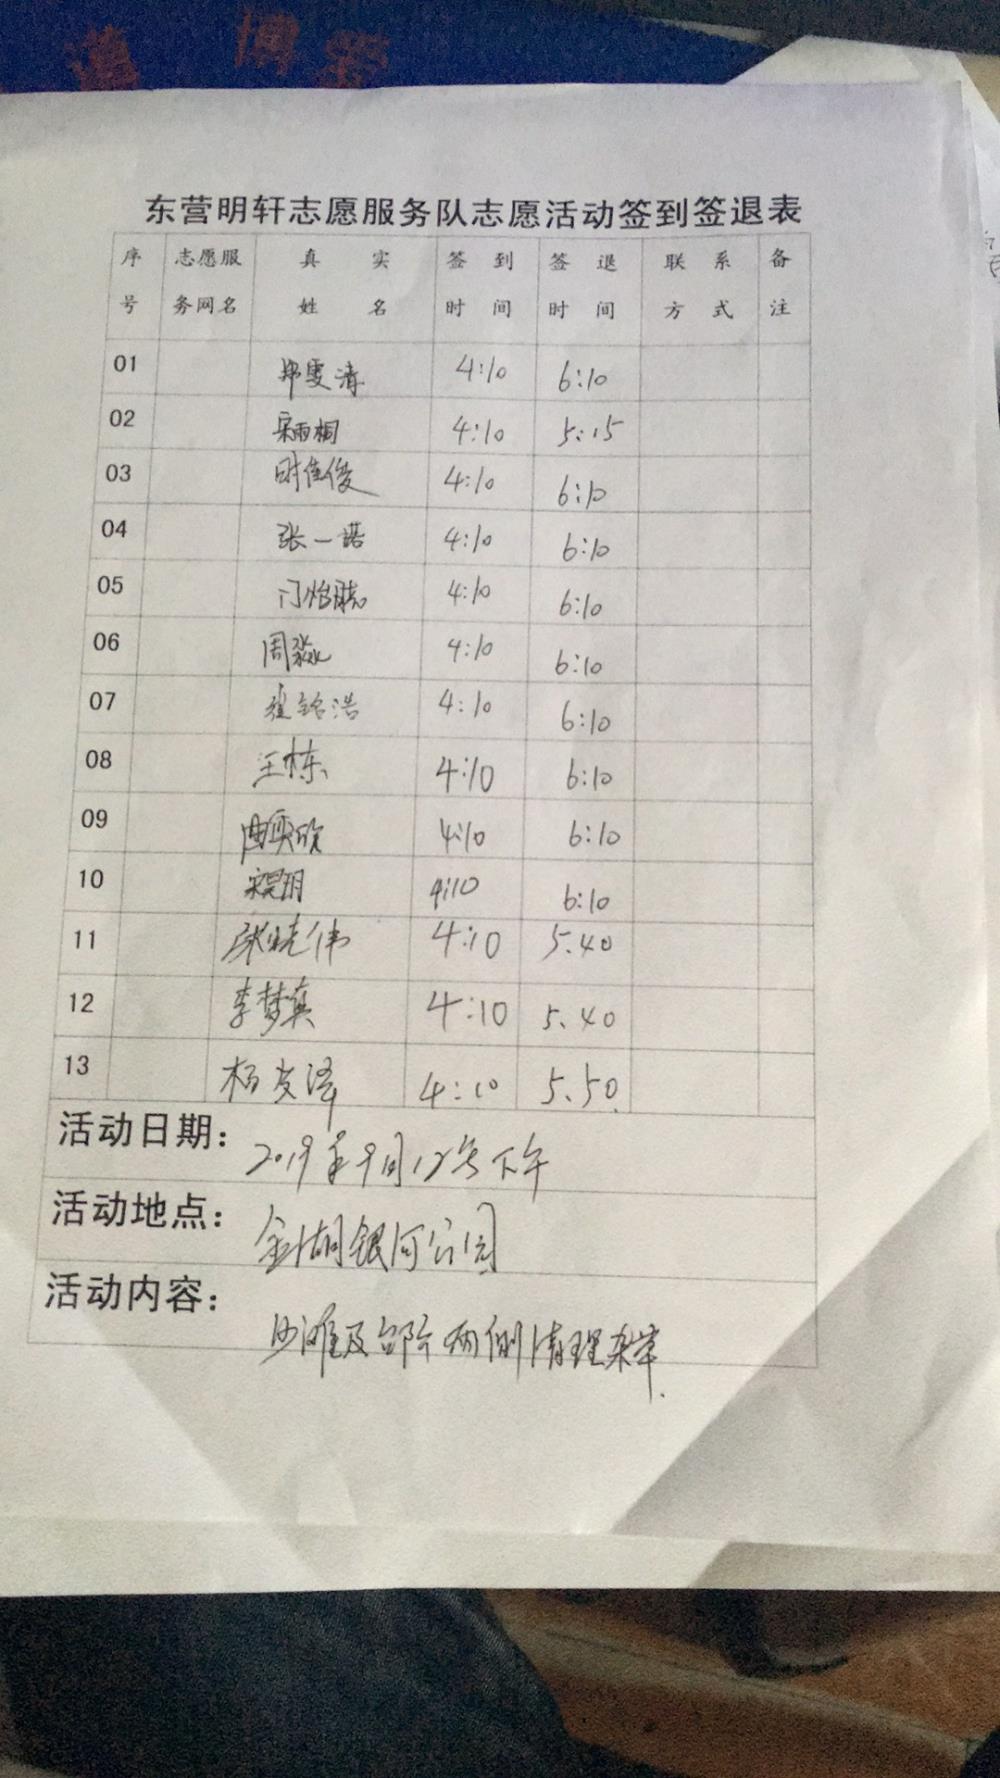 东营明轩志愿服务队志愿活动签到签退表
序号 志愿服务网名 真实姓名 签到时间 签退时间 联系方式 备注
01 郑雯清 4:10 6:10
02 宋雨桐 4:10 5:15
03 时佳俊 4:10 6:10
04 张一诺 4:10 6:10
05 门怡 4:10 6:10
06 周淼 4:10 6:10
07 翟铭浩 4:10 6:10
08 王栋 4:10 6:10
09 曲奕欣 4:10 6:10
10 宋昊玥 4:10 6:10
11 张晓伟 4:10 5.40
12 李梦真 4:10 5.40
13 杨友泽 4:10 5.50
活动日期: 2019年9月12号下午
活动地点: 金湖银河公园
活动内容: 沙滩及台阶两侧清理杂草.